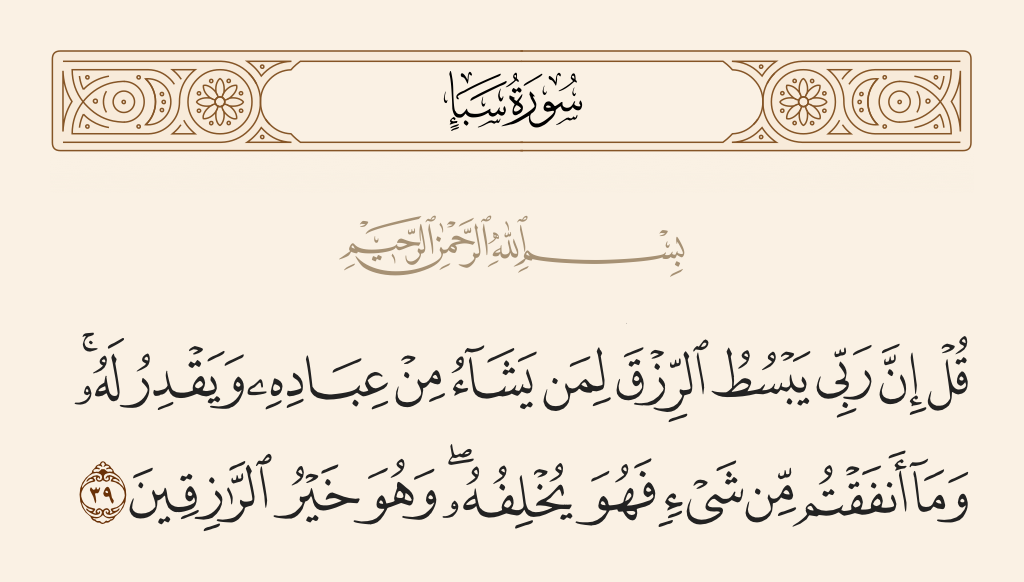 سُورَةُ سَبَإٍ
بِسْمِ ٱللَّهِ ٱلرَّحْمَٰنِ ٱلرَّحِيمِ
قُلْ إِنَّ رَبِّى يَبْسُطُ ٱلرِّزْقَ لِمَن يَشَآءُ مِنْ عِبَادِهِۦ وَيَقْدِرُ لَهُۥ ۚ
وَمَآ أَنفَقْتُم مِّن شَىْءٍ فَهُوَ يُخْلِفُهُۥ ۖ وَهُوَ خَيْرُ ٱلرَّٰزِقِينَ ٣٩